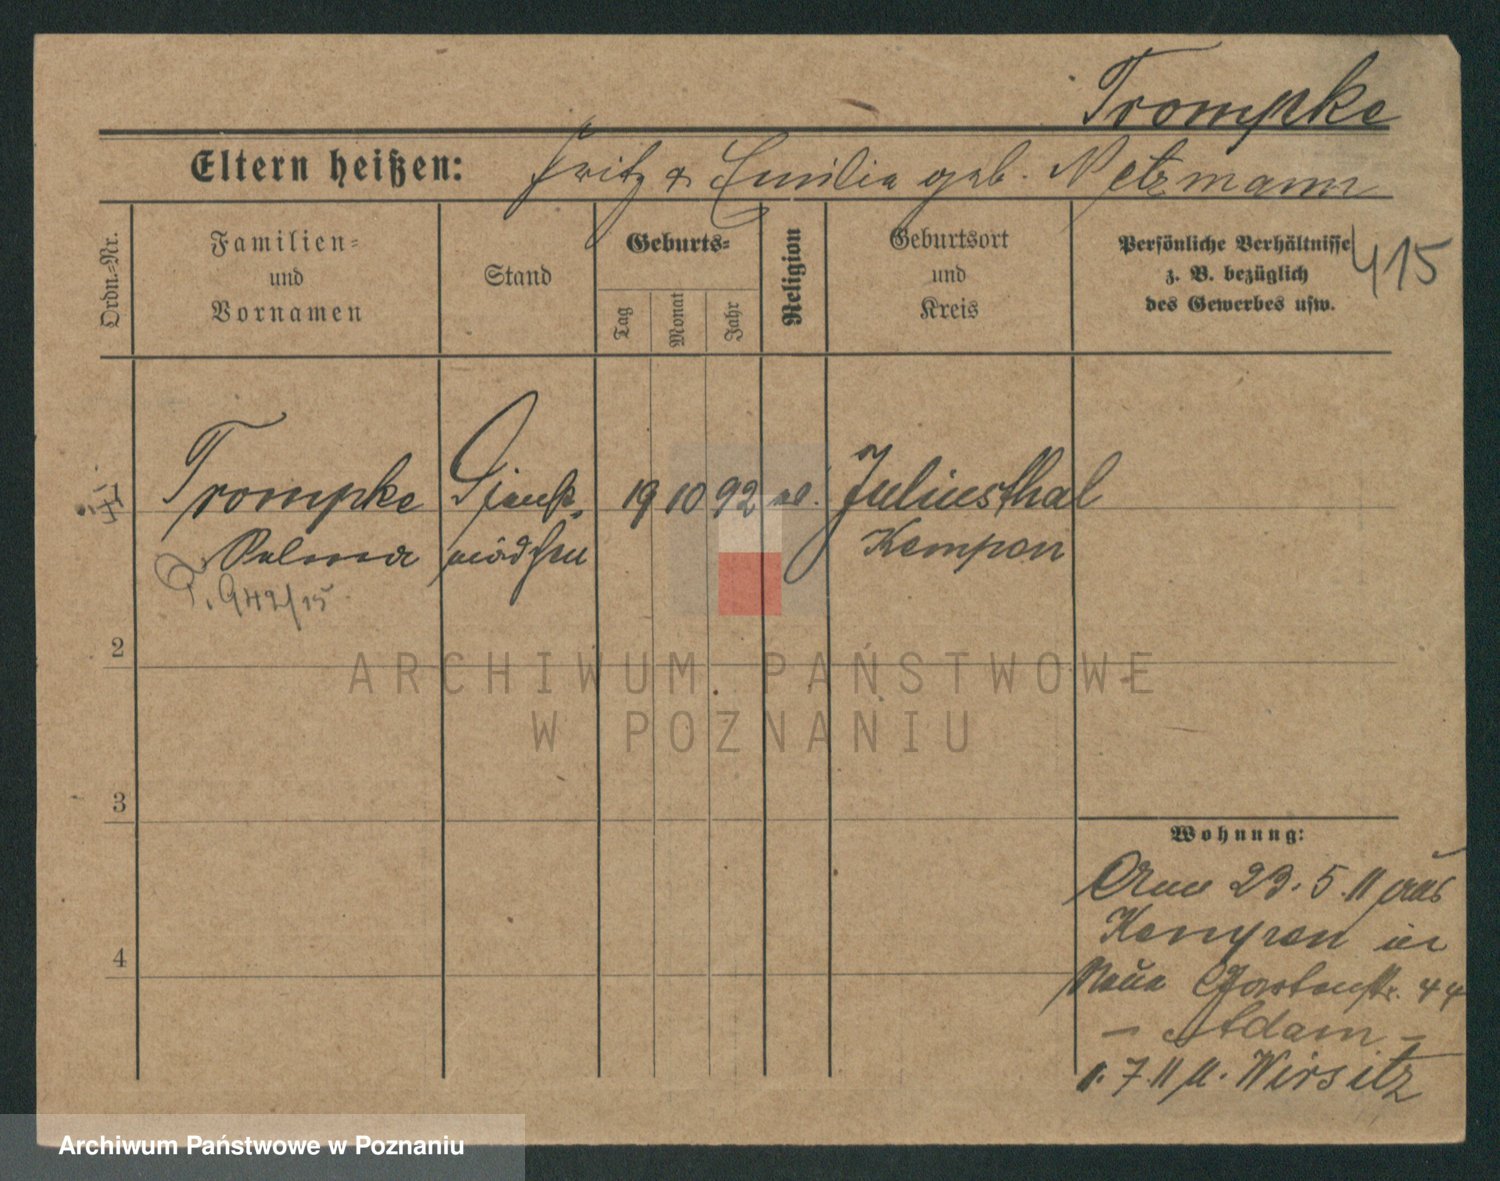 Trompke
Eltern heißen: Fritz & Emilia geb. Netzmann
Ordn.-Nr.
Familien-
und
Vornamen
Stand
Geburts-
Tag
Monat
Jahr
Religion
Geburtsort
und
Kreis
Persönliche Verhältnisse
z. B. bezüglich
des Gewerbes usw.
415
Trompke Dienst- 19 10 92 ev. Juliusthal
mädchen Kempen
942/15
2
3
4
Wohnung:
23.5.11 aus
Kempen in
Neue Gartenstr. 44
- Adam -
1.7.11 n. Wirsitz
ARCHIWUM PAŃSTWOWE
W POZNANIU
Archiwum Państwowe w Poznaniu